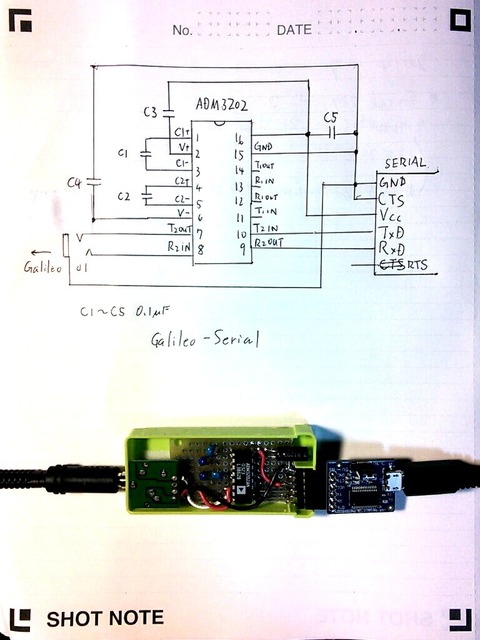 No. DATE
ADM3202
C3
C5
C1+ 1 16
V+ 2 15 GND
C1
C1- 3 14 T1OUT
C2+ 4 13 R1IN
C2
C2- 5 12 R1OUT
V- 6 11 T1IN
T2OUT 7 10 T2IN
R2IN 8 9 R2OUT
C4
SERIAL
GND
CTS
Vcc
TxD
RxD
CTS RTS
Galileo
C1~C5 0.1μF
Galileo-Serial
SHOT NOTE